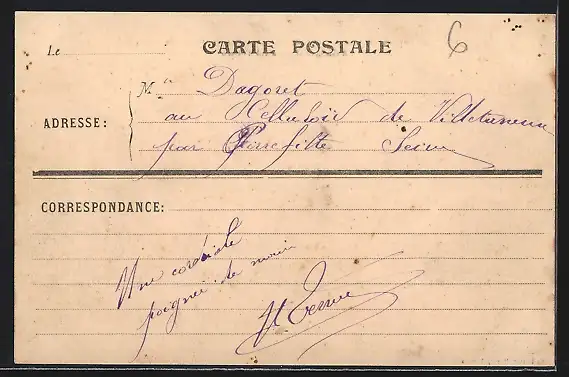 CARTE POSTALE
6
Le
M. Dagoret
ADRESSE: au Celluloïd de Villetaneuse
par Pierrefitte Seine
CORRESPONDANCE:
Une cordiale
poignée de main